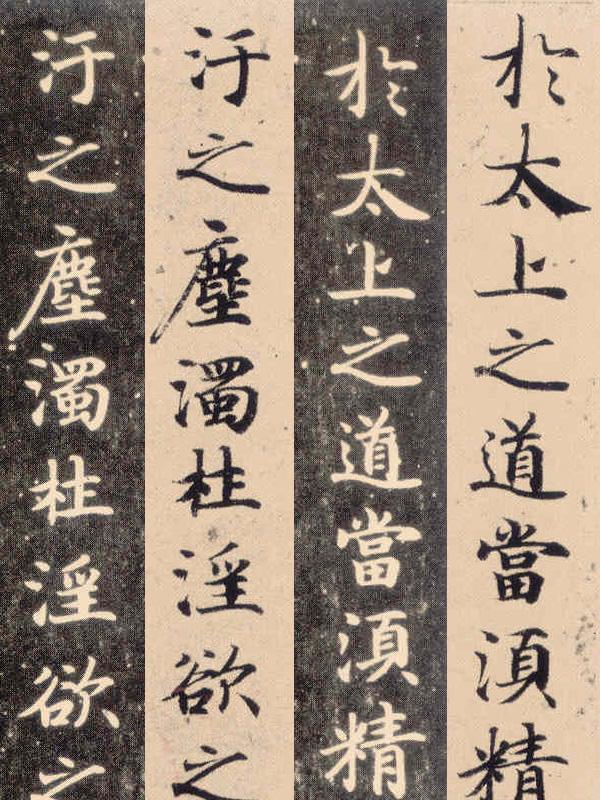 於太上之道當湏精
於太上之道當湏精
汙之塵濁杜淫欲之
汙之塵濁杜淫欲之